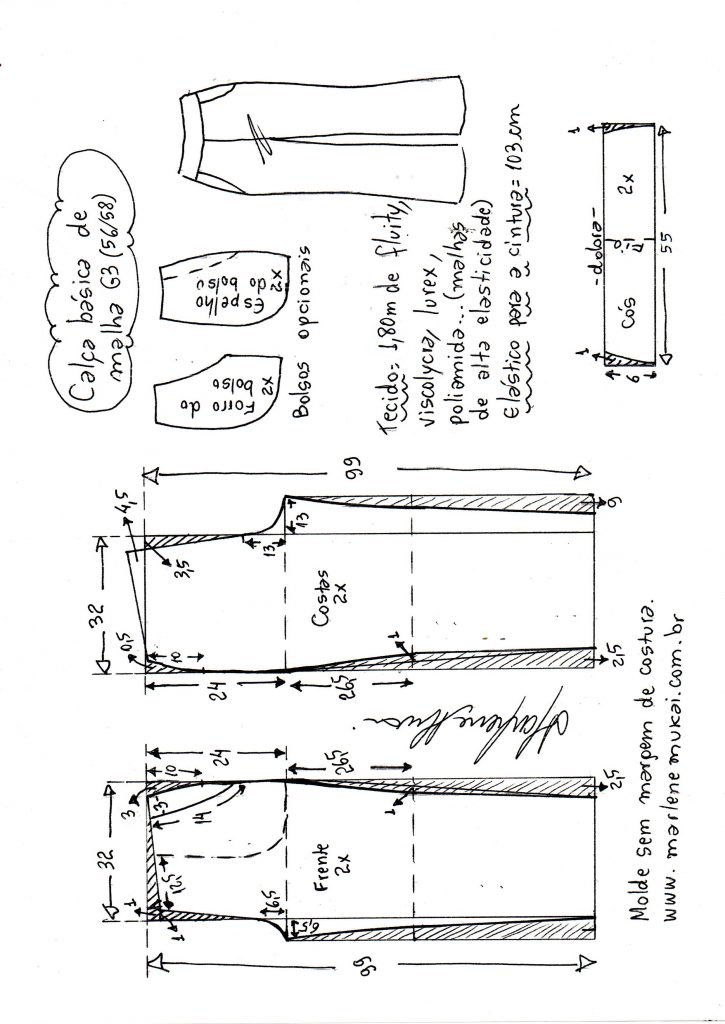 Calça básica de
malha G3 (56/58)
Forro do
bolso
2x
Espelho
do bolso
2x
Bolsos opcionais
Tecido= 1,80m de fluity,
viscolycra, lurex,
poliamida... (malhas
de alta elasticidade)
Elástico para a cintura= 103 cm
1
1
-dobra-
cós
2x
6
55
99
32
1
1
12,5
3
3
14
10
24
26,5
6,5
6,5
1
2,5
Frente
2x
32
0,5
10
24
26,5
1
2,5
4,5
3,5
13
13
9
99
Costas
2x
Molde sem margem de costura.
www.marlenemukai.com.br